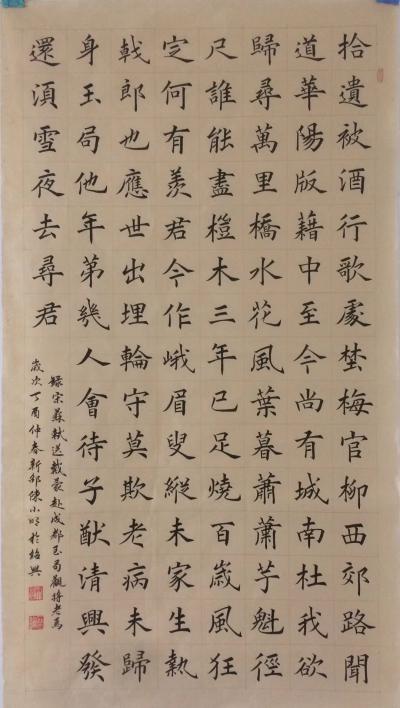 拾遺被酒行歌處埜梅官柳西郊路聞
道華陽版藉中至今尚有城南杜我欲
歸尋萬里橋水花風葉暮蕭蕭芋魁徑
尺誰能盡榿木三年已足燒百歲風狂
定何有羨君今作峨眉叟縱未家生執
戟郎也應世出埋輪守莫欺老病未歸
身玉局他年第幾人會待子猷清興發
還須雪夜去尋君
錄宋蘇軾送戴蒙赴成都玉局觀將老焉
歲次丁酉仲春新邨陳小明於紹興